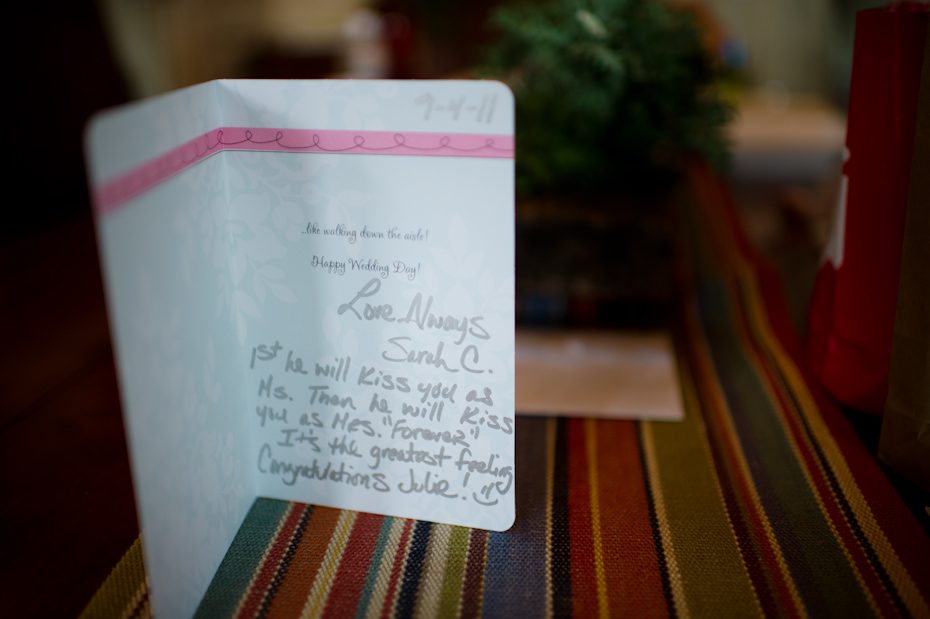 9-4-11
...like walking down the aisle!
Happy Wedding Day!
Love Always
Sarah C.
1st he will Kiss you as
Ms. Then he will Kiss
you as Mrs. "Forever"!
It's the greatest feeling
Congradulations Julie! :)